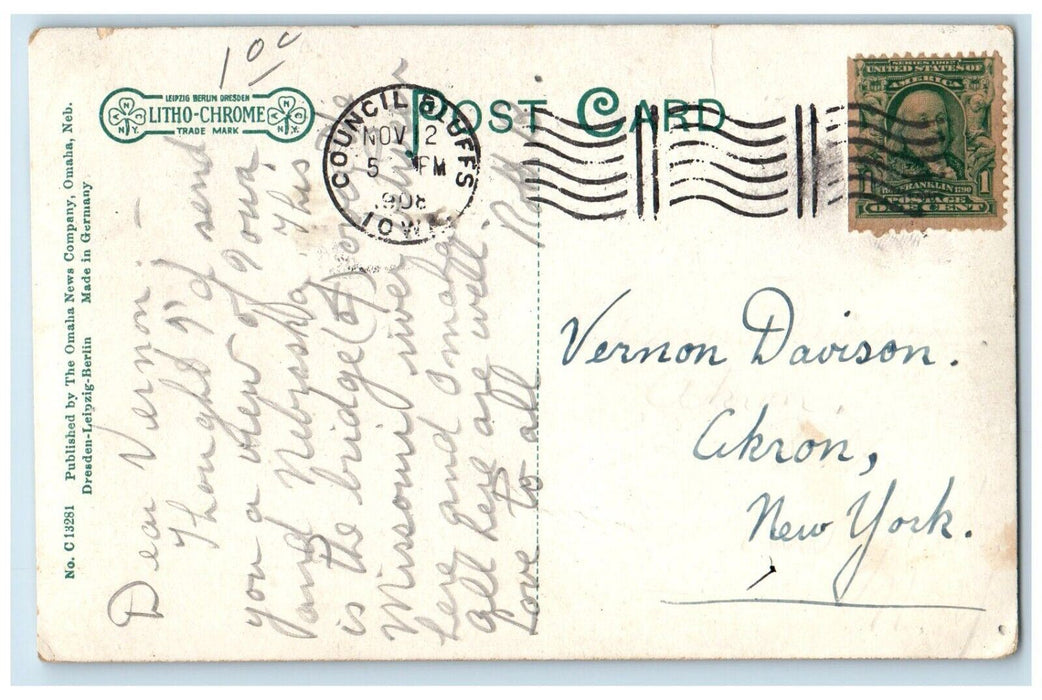 10c
LEIPZIG BERLIN DRESDEN
LITHO-CHROME
TRADE MARK
N.Y.
POST CARD
COUNCIL BLUFFS
NOV 2
5 PM
1908
IOWA
SERIES 1902
UNITED STATES OF
AMERICA
FRANKLIN 1790
1
POSTAGE
ONE CENT
No. C 13281 Published by The Omaha News Company, Omaha, Neb.
Dresden-Leipzig-Berlin Made in Germany
Dear Vernon:—
Thought I'd send
you a view of Iowa,
and Nebraska. This
is the bridge over the
Missouri river between
here and Omaha.
all here are well.
Love to all
Vernon Davison.
Akron,
New York.